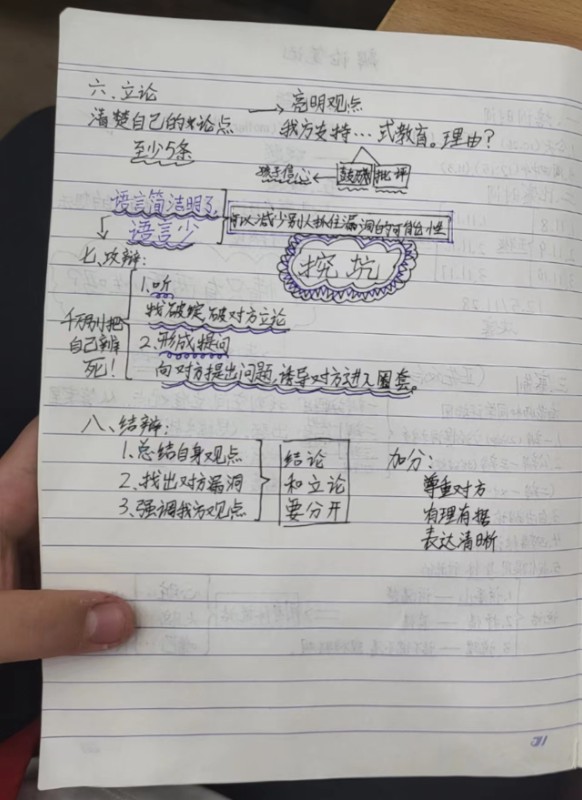 六、立论
清楚自己的论点 → 亮明观点
至少5条
我方支持…式教育。理由?
信心 ← 鼓励 批评
语言简洁明了
语言少
可以减少别人抓住漏洞的可能性
挖坑
七、攻辩:
千万别把
自己辩
死!
1.听
找破绽,破对方立论
2.形成提问
向对方提出问题,诱导对方进入圈套。
八、结辩:
1.总结自身观点
2.找出对方漏洞
3.强调我方观点
结论
和立论
要分开
加分:
尊重对方
有理有据
表达清晰